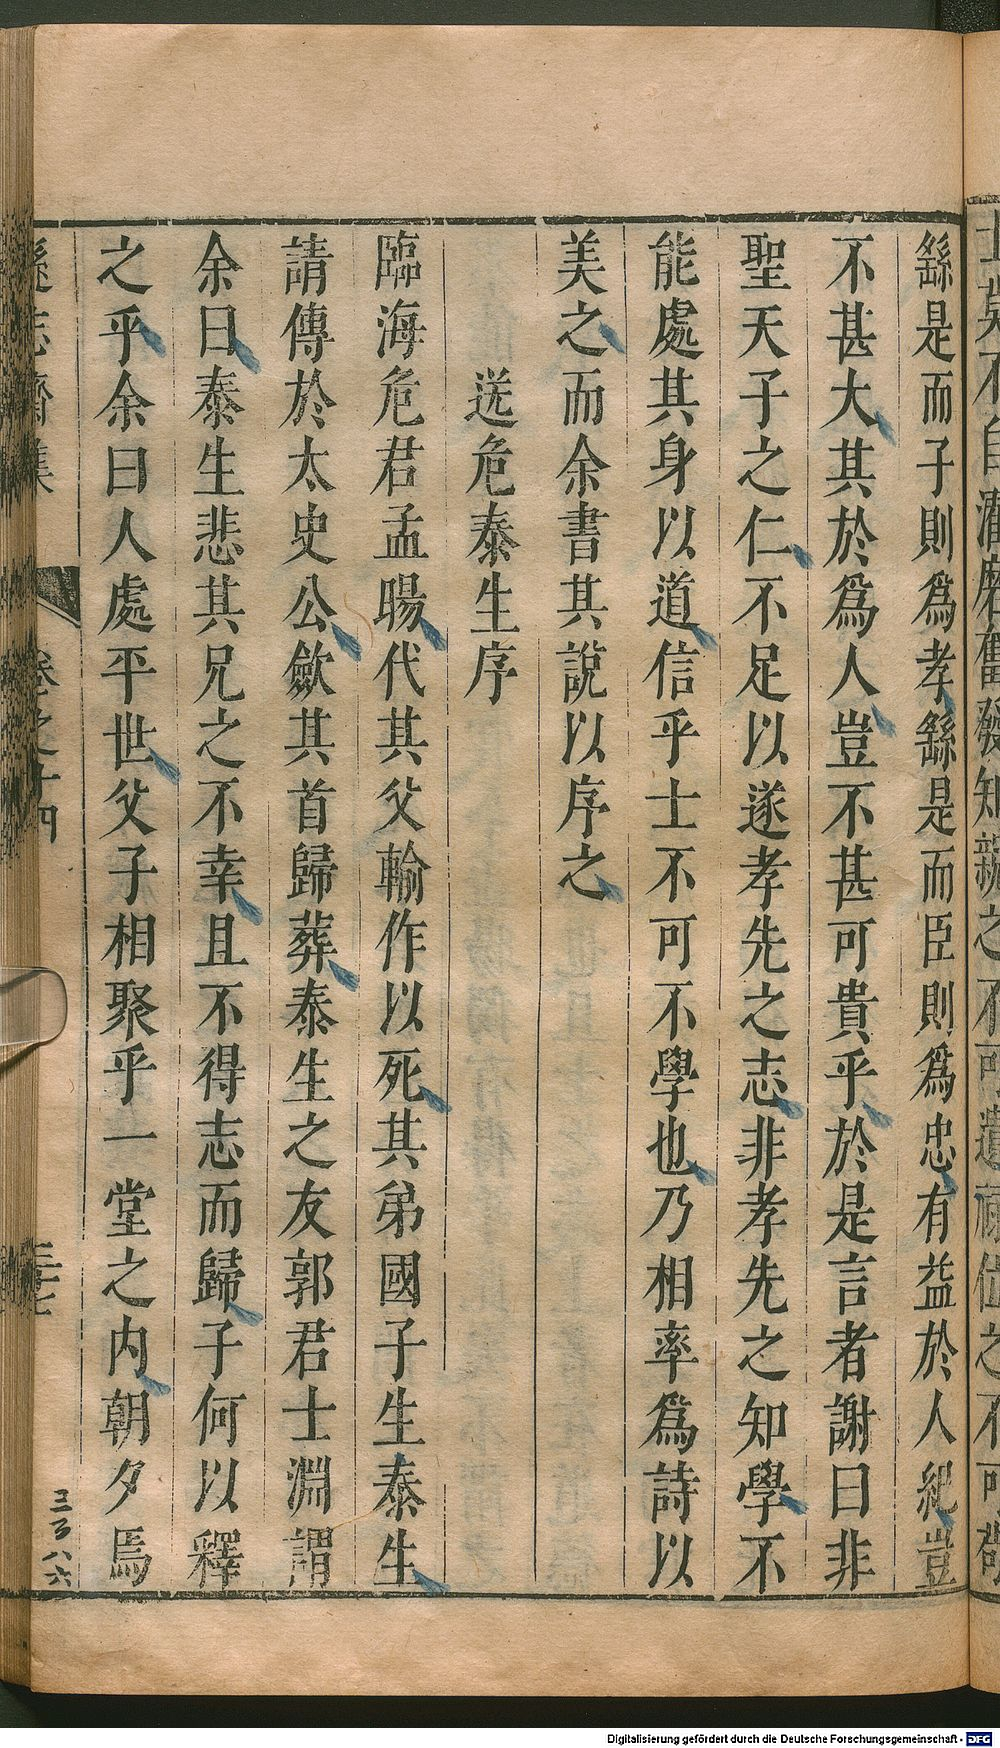 繇是而子則爲孝繇是而臣則爲忠有益於人紀豈
不甚大其於爲人豈不甚可貴乎於是言者謝曰非
聖天子之仁不足以遂孝先之志非孝先之知學不
能處其身以道信乎士不可不學也乃相率爲詩以
美之而余書其說以序之
送危泰生序
臨海危君孟暘代其父輸作以死其弟國子生泰生
請傳於太史公歛其首歸葬泰生之友郭君士淵謂
余曰泰生悲其兄之不幸且不得志而歸子何以釋
之乎余曰人處平世父子相聚乎一堂之内朝夕焉
遜志齋集
卷之十四
三十七
三百八六
Digitalisierung gefördert durch die Deutsche Forschungsgemeinschaft - DFG